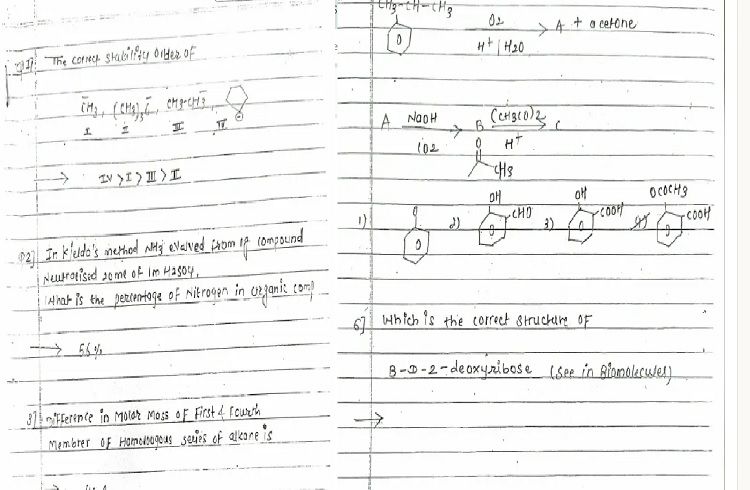 Q1] The correct stability order of
C̄H3, (CH3)3C̄, CH3-C̄H2,
I II III IV
→ IV > I > III > II
02] In Kjeldo's method NH3 evolved from 1g compound
Neutrotised 20ml of 1m H2SO4.
What is the percentage of Nitrogen in organic comp
→ 56%
3] Difference in Molar Mass of First & Fourth
Member of Homologous series of alkane is
CH3-CH-CH3
O2
→ A + acetone
H+ / H2O
A NaOH → B (CH3CO)2 → C
CO2 H+
O
CH3
OH OH OCOCH3
1) 2) CHO 3) COOH 4) COOH
6] Which is the correct structure of
B-D-2-deoxyribose (See in Biomolecules)
→